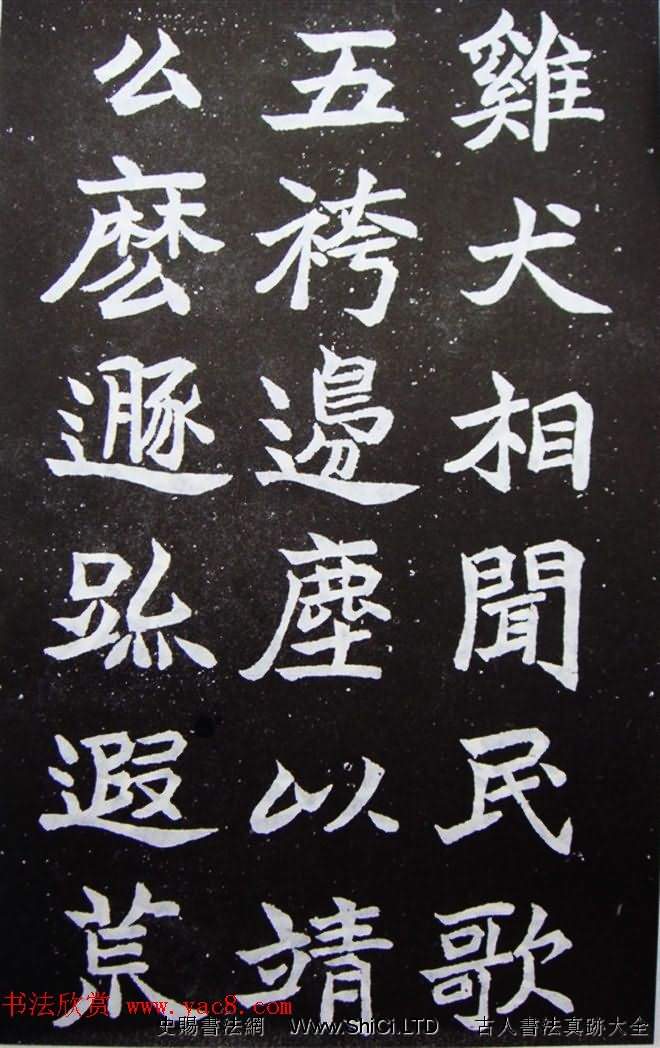 雞犬相聞民歌
五袴邊塵以靖
么麽遯跡遐荒
书法欣赏 www.yac8.com
史賜書法網 WWW.ShiCi.LTD 古人書法真跡大全